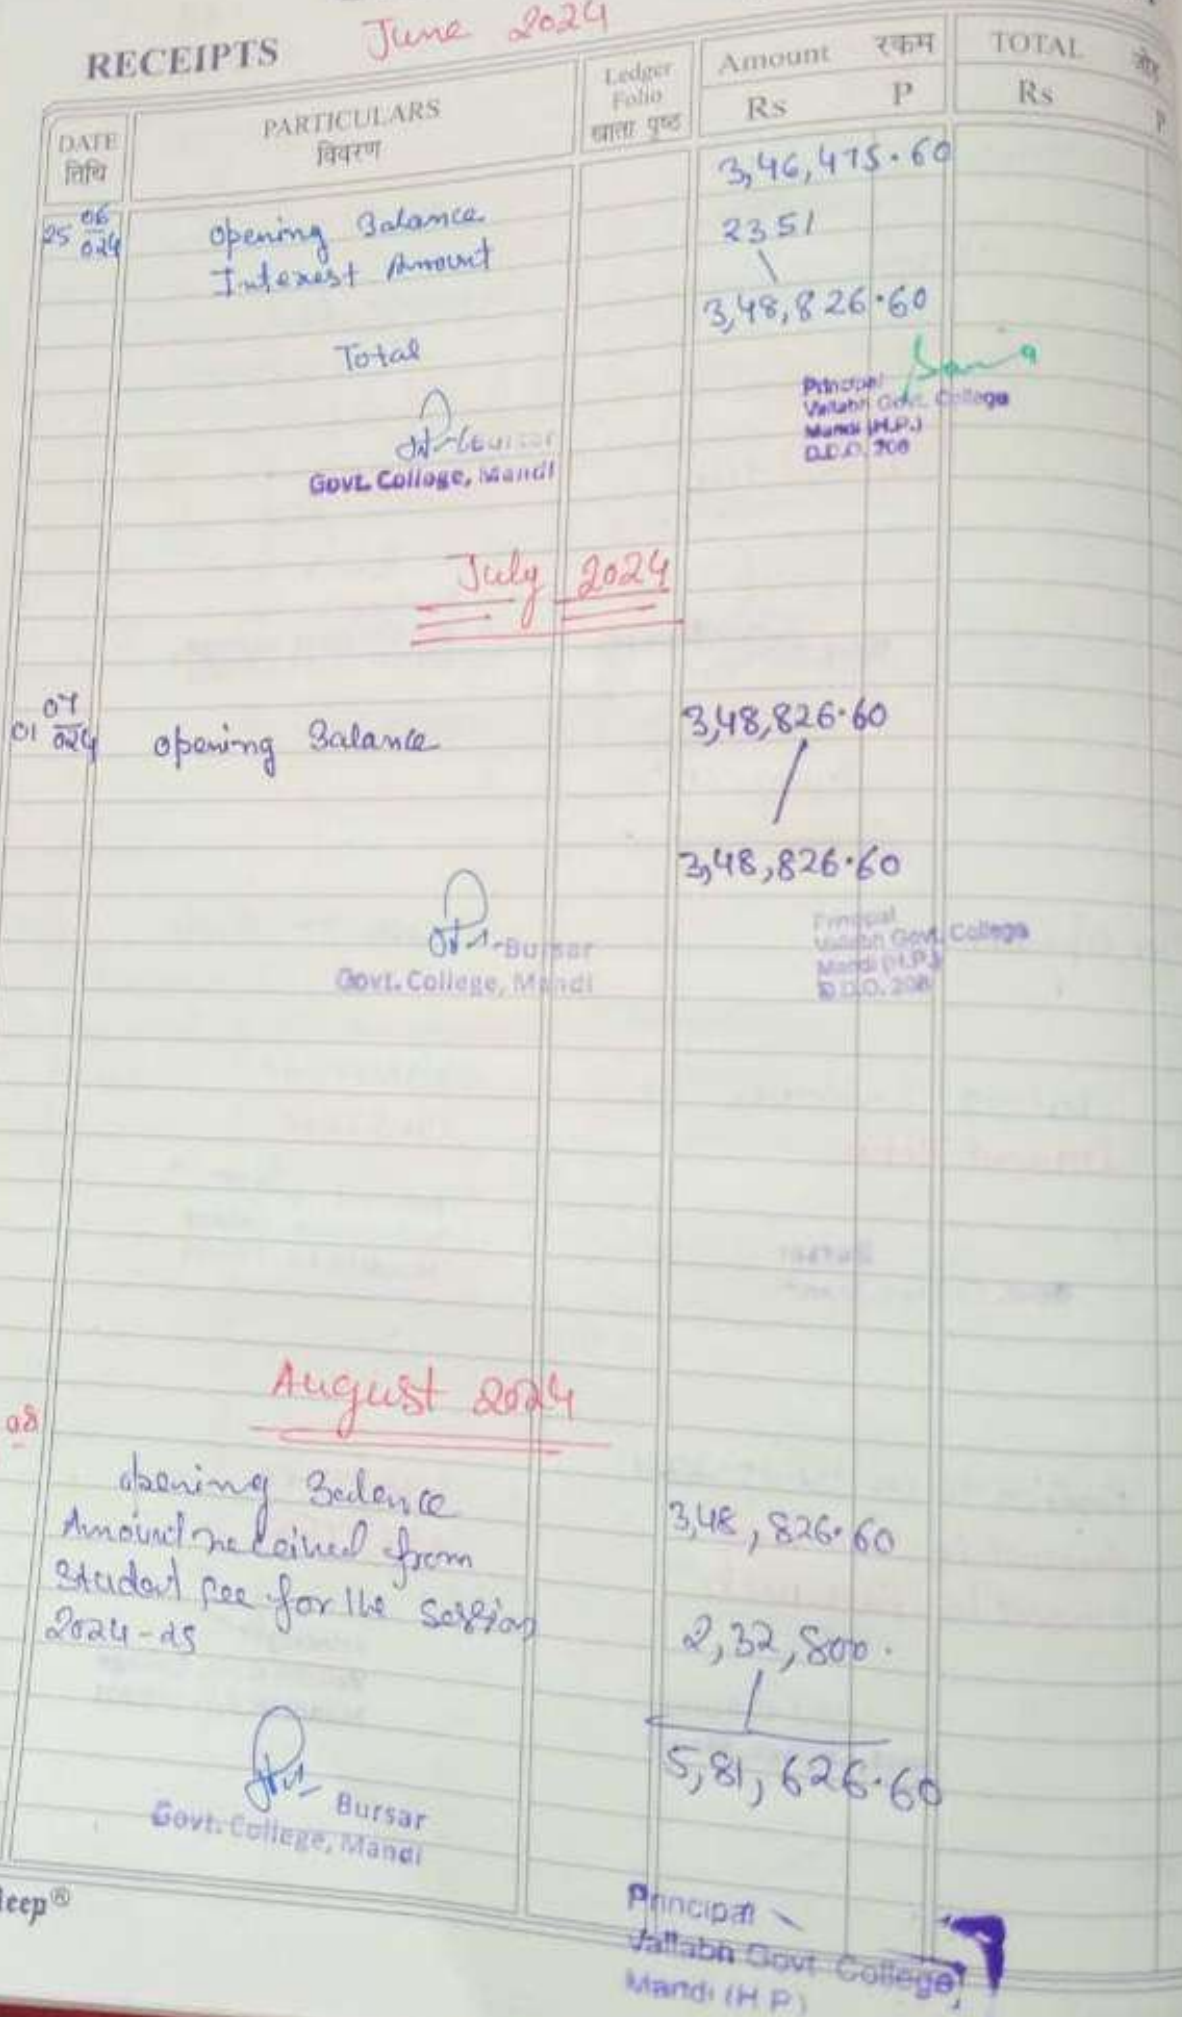 RECEIPTS June 2024
DATE
तिथि
PARTICULARS
विवरण
Ledger
Folio
खाता पृष्ठ
Amount रकम
Rs P
TOTAL जोड़
Rs P
3,46,475.60
25 06/024 Opening Balance
2351
Interest Amount
3,48,826.60
Total
Principal
Vallabh Govt. College
Mandi (H.P.)
D.D.O. 208
Bursar
Govt. College, Mandi
July 2024
01 07/024 Opening Balance 3,48,826.60
3,48,826.60
Bursar
Govt. College, Mandi
Principal
Vallabh Govt. College
Mandi (H.P.)
D.D.O. 208
August 2024
08
Opening Balance 3,48,826.60
Amount received from
Student fee for the Session
2024-25 2,32,800.
5,81,626.60
Bursar
Govt. College, Mandi
Principal
Vallabh Govt College,
Mandi (H P)